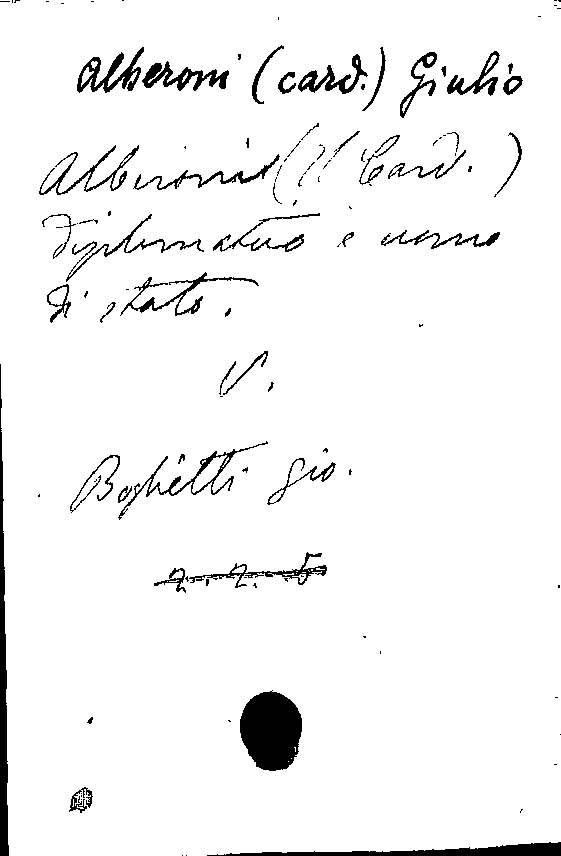 Alberoni (card.) Giulio
Alberoni (Il Card.)
diplomatico e uomo
di stato.
V.
Boghetti Gio.
2. 2. 5